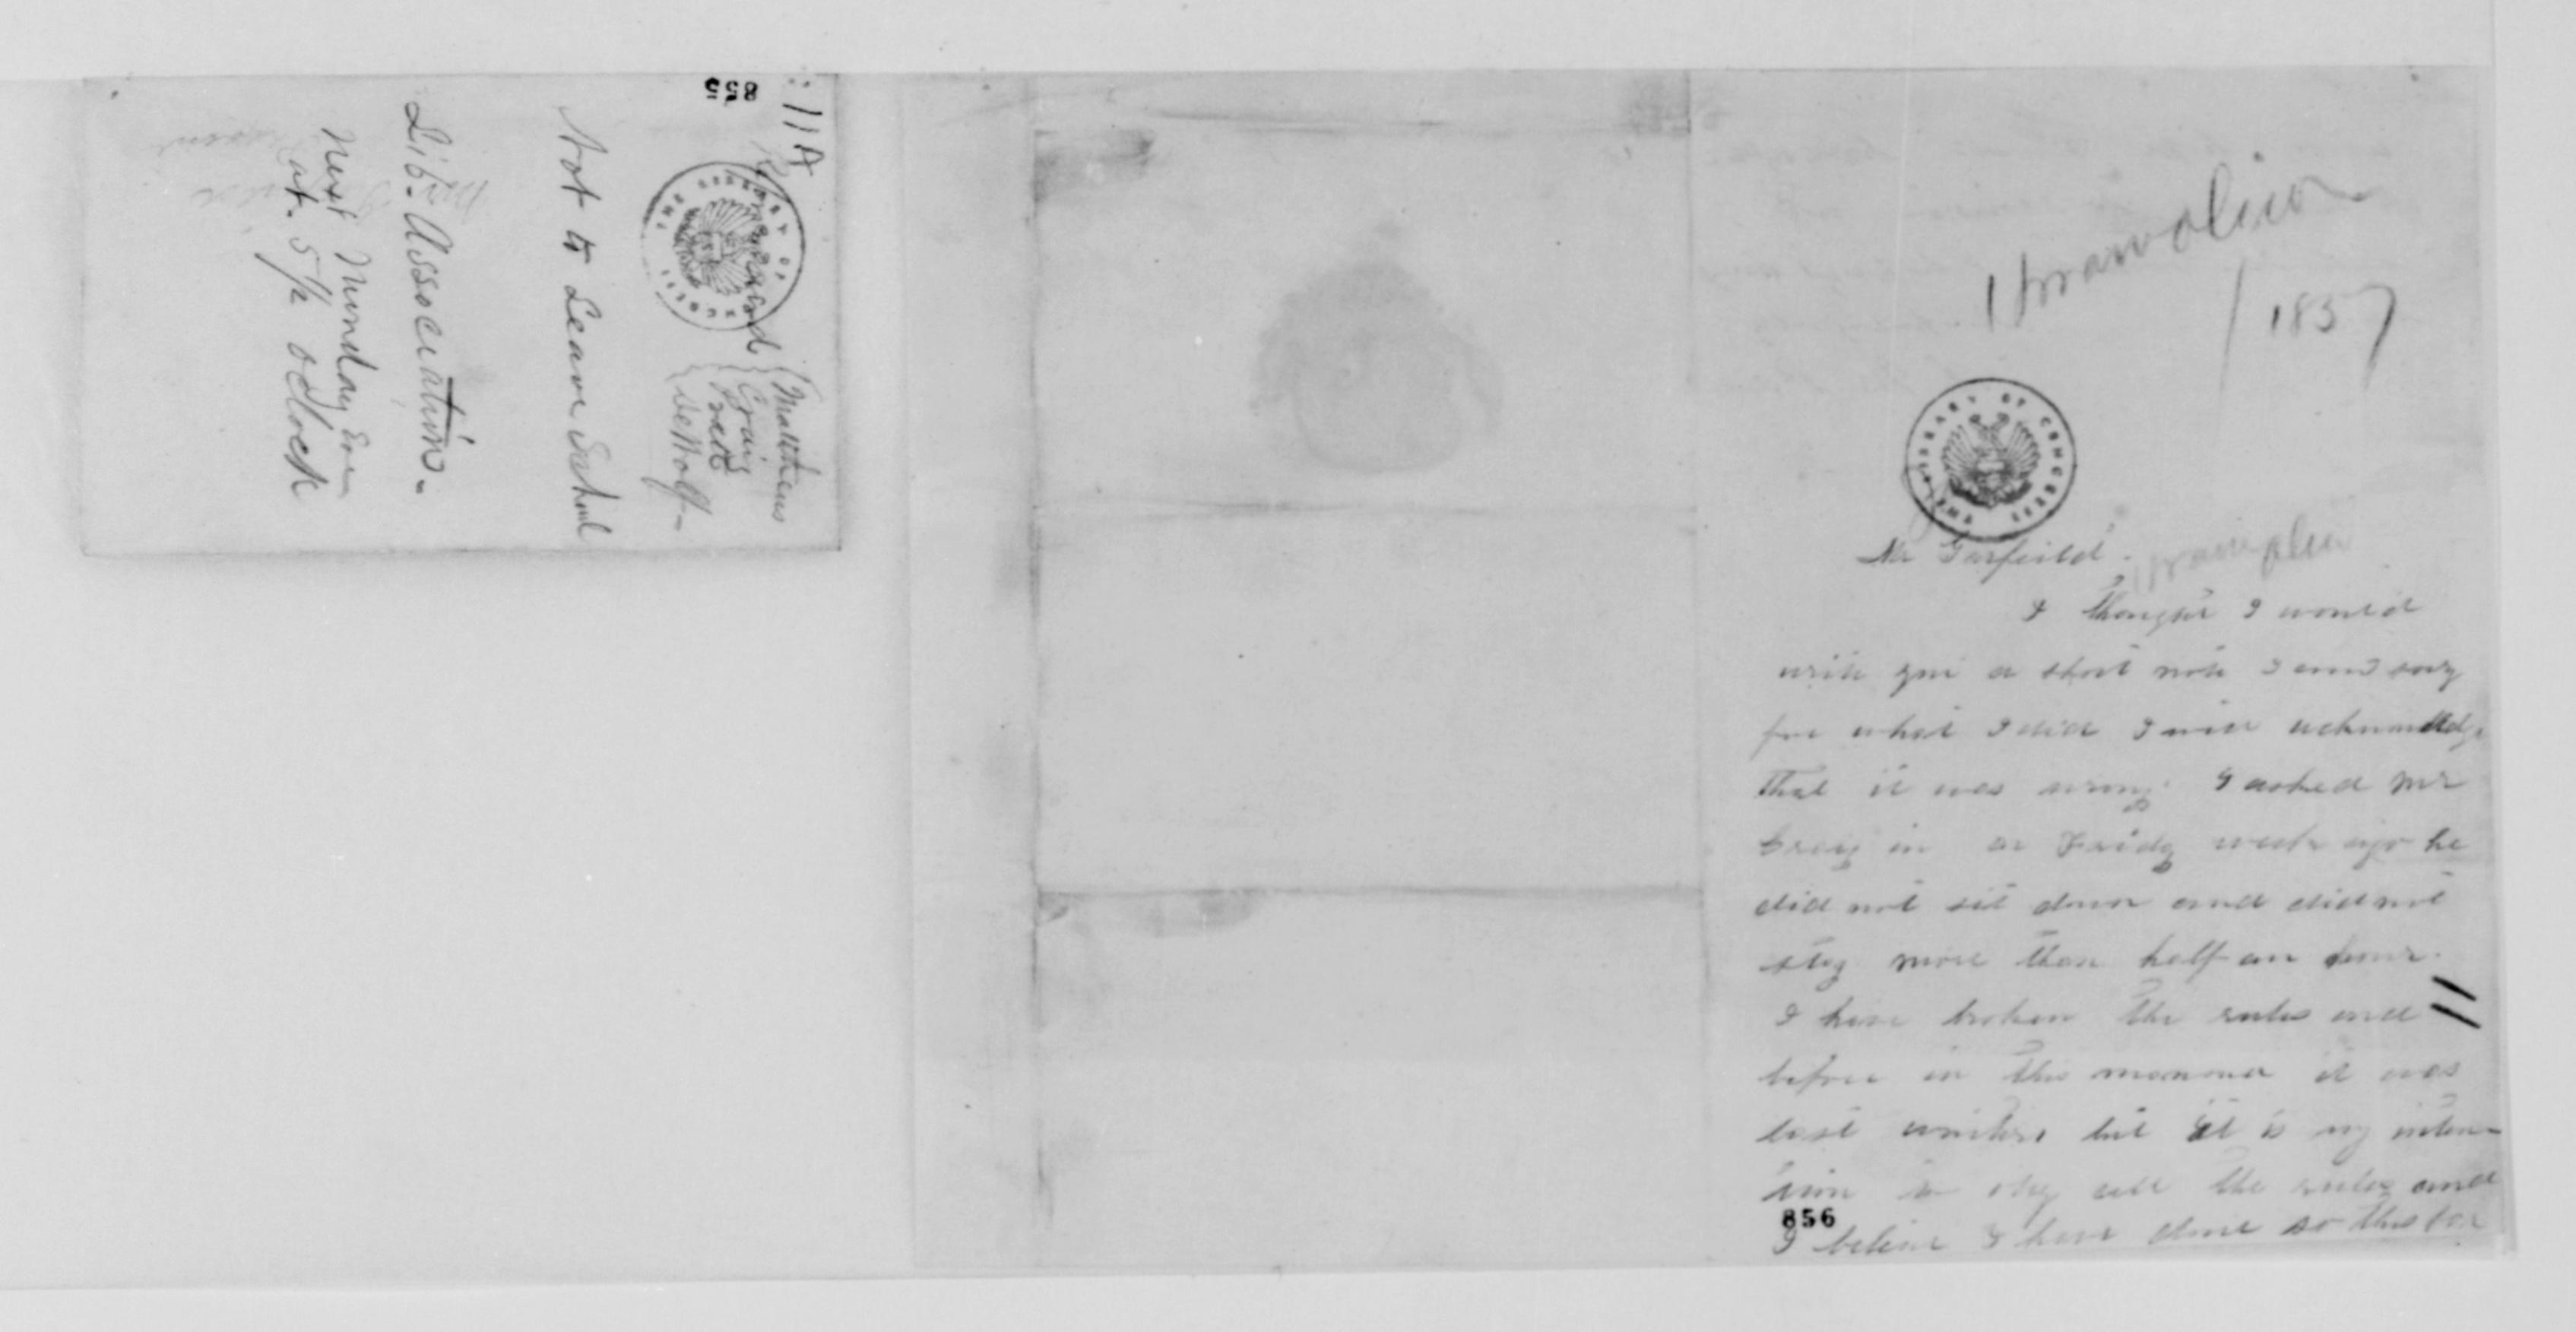 855
: 11 A
Matthews
Craig
DeWolf -
Not to Leave School
Lib. Association.
next Munday Eve
at. 5 1/2 oclock
1857
THE LIBRARY OF CONGRESS
Mr Garfeild.
I thought I would
write you a short note I am sory
for what I did I will acknowledge
that it was wrong. I asked Mr
Craig in on Friday week ago he
did not sit down and did not
stay more than half an hour.
I have broken the rules once
before in this manner it was
last winter but it is my inten-
tion to obey all the rules and
856
I believe I have done so this far